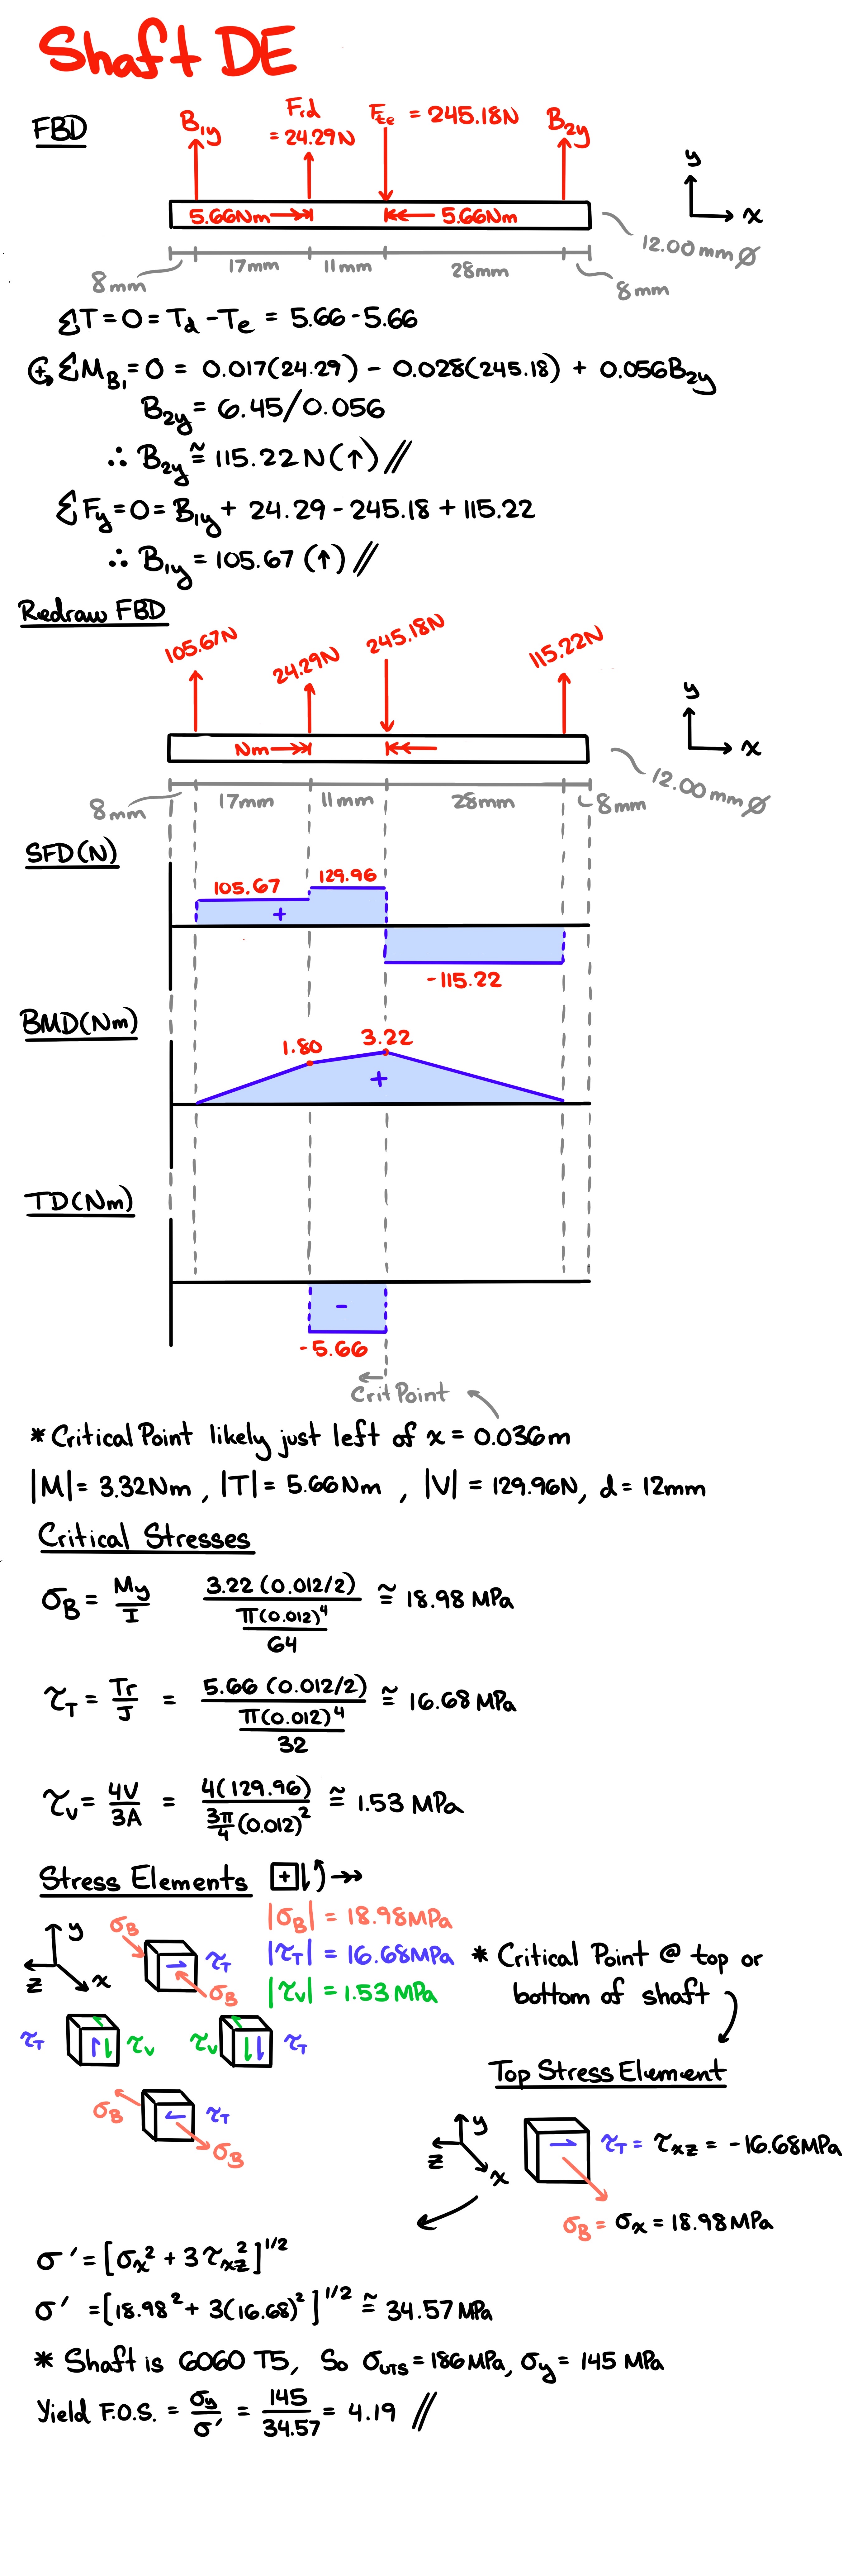 Shaft DE
FBD
B1y
Frd = 24.29N
Fte = 245.18N
B2y
5.66Nm
5.66Nm
y
x
12.00mmØ
8mm
17mm
11mm
28mm
8mm
ΣT = 0 = Td - Te = 5.66 - 5.66
ΣMB1 = 0 = 0.017(24.29) - 0.028(245.18) + 0.056B2y
B2y = 6.45/0.056
∴ B2y ≅ 115.22N(↑)//
ΣFy = 0 = B1y + 24.29 - 245.18 + 115.22
∴ B1y = 105.67 (↑)//
Redraw FBD
105.67N
24.29N
245.18N
115.22N
Nm
y
x
12.00mmØ
8mm
17mm
11mm
28mm
8mm
SFD(N)
105.67
129.96
+
-115.22
BMD(Nm)
1.80
3.22
+
TD(Nm)
-
-5.66
Crit Point
* Critical Point likely just left of x = 0.036m
|M| = 3.32Nm, |T| = 5.66Nm, |V| = 129.96N, d = 12mm
Critical Stresses
σB = My/I 3.22(0.012/2) / (π(0.012)^4/64) ≅ 18.98 MPa
τT = Tr/J = 5.66(0.012/2) / (π(0.012)^4/32) ≅ 16.68 MPa
τV = 4V/3A = 4(129.96) / (3π/4 (0.012)^2) ≅ 1.53 MPa
Stress Elements +
|σB| = 18.98MPa
|τT| = 16.68MPa
|τV| = 1.53MPa
* Critical Point @ top or
bottom of shaft
y
z
x
σB
τT
σB
τT
τV
τV
τT
σB
τT
σB
Top Stress Element
y
z
x
τT = τxz = -16.68MPa
σB = σx = 18.98MPa
σ' = [σx² + 3τxz²]^1/2
σ' = [18.98² + 3(16.68)²]^1/2 ≅ 34.57MPa
* Shaft is 6060 T5, So σUTS = 186MPa, σy = 145 MPa
Yield F.O.S. = σy/σ' = 145/34.57 = 4.19 //